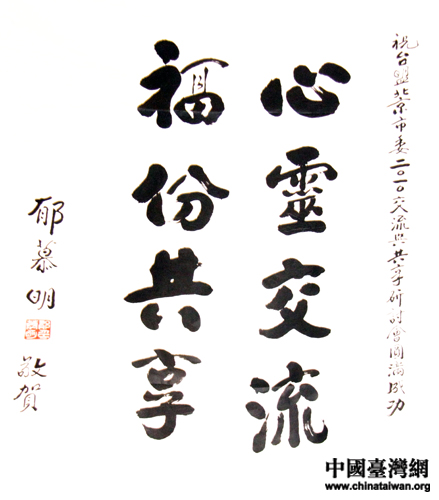 祝台盟北京市委二〇一〇交流與共享研討會圓滿成功
心靈交流
福份共享
郁慕明
敬賀
中國臺灣網
www.chinataiwan.org